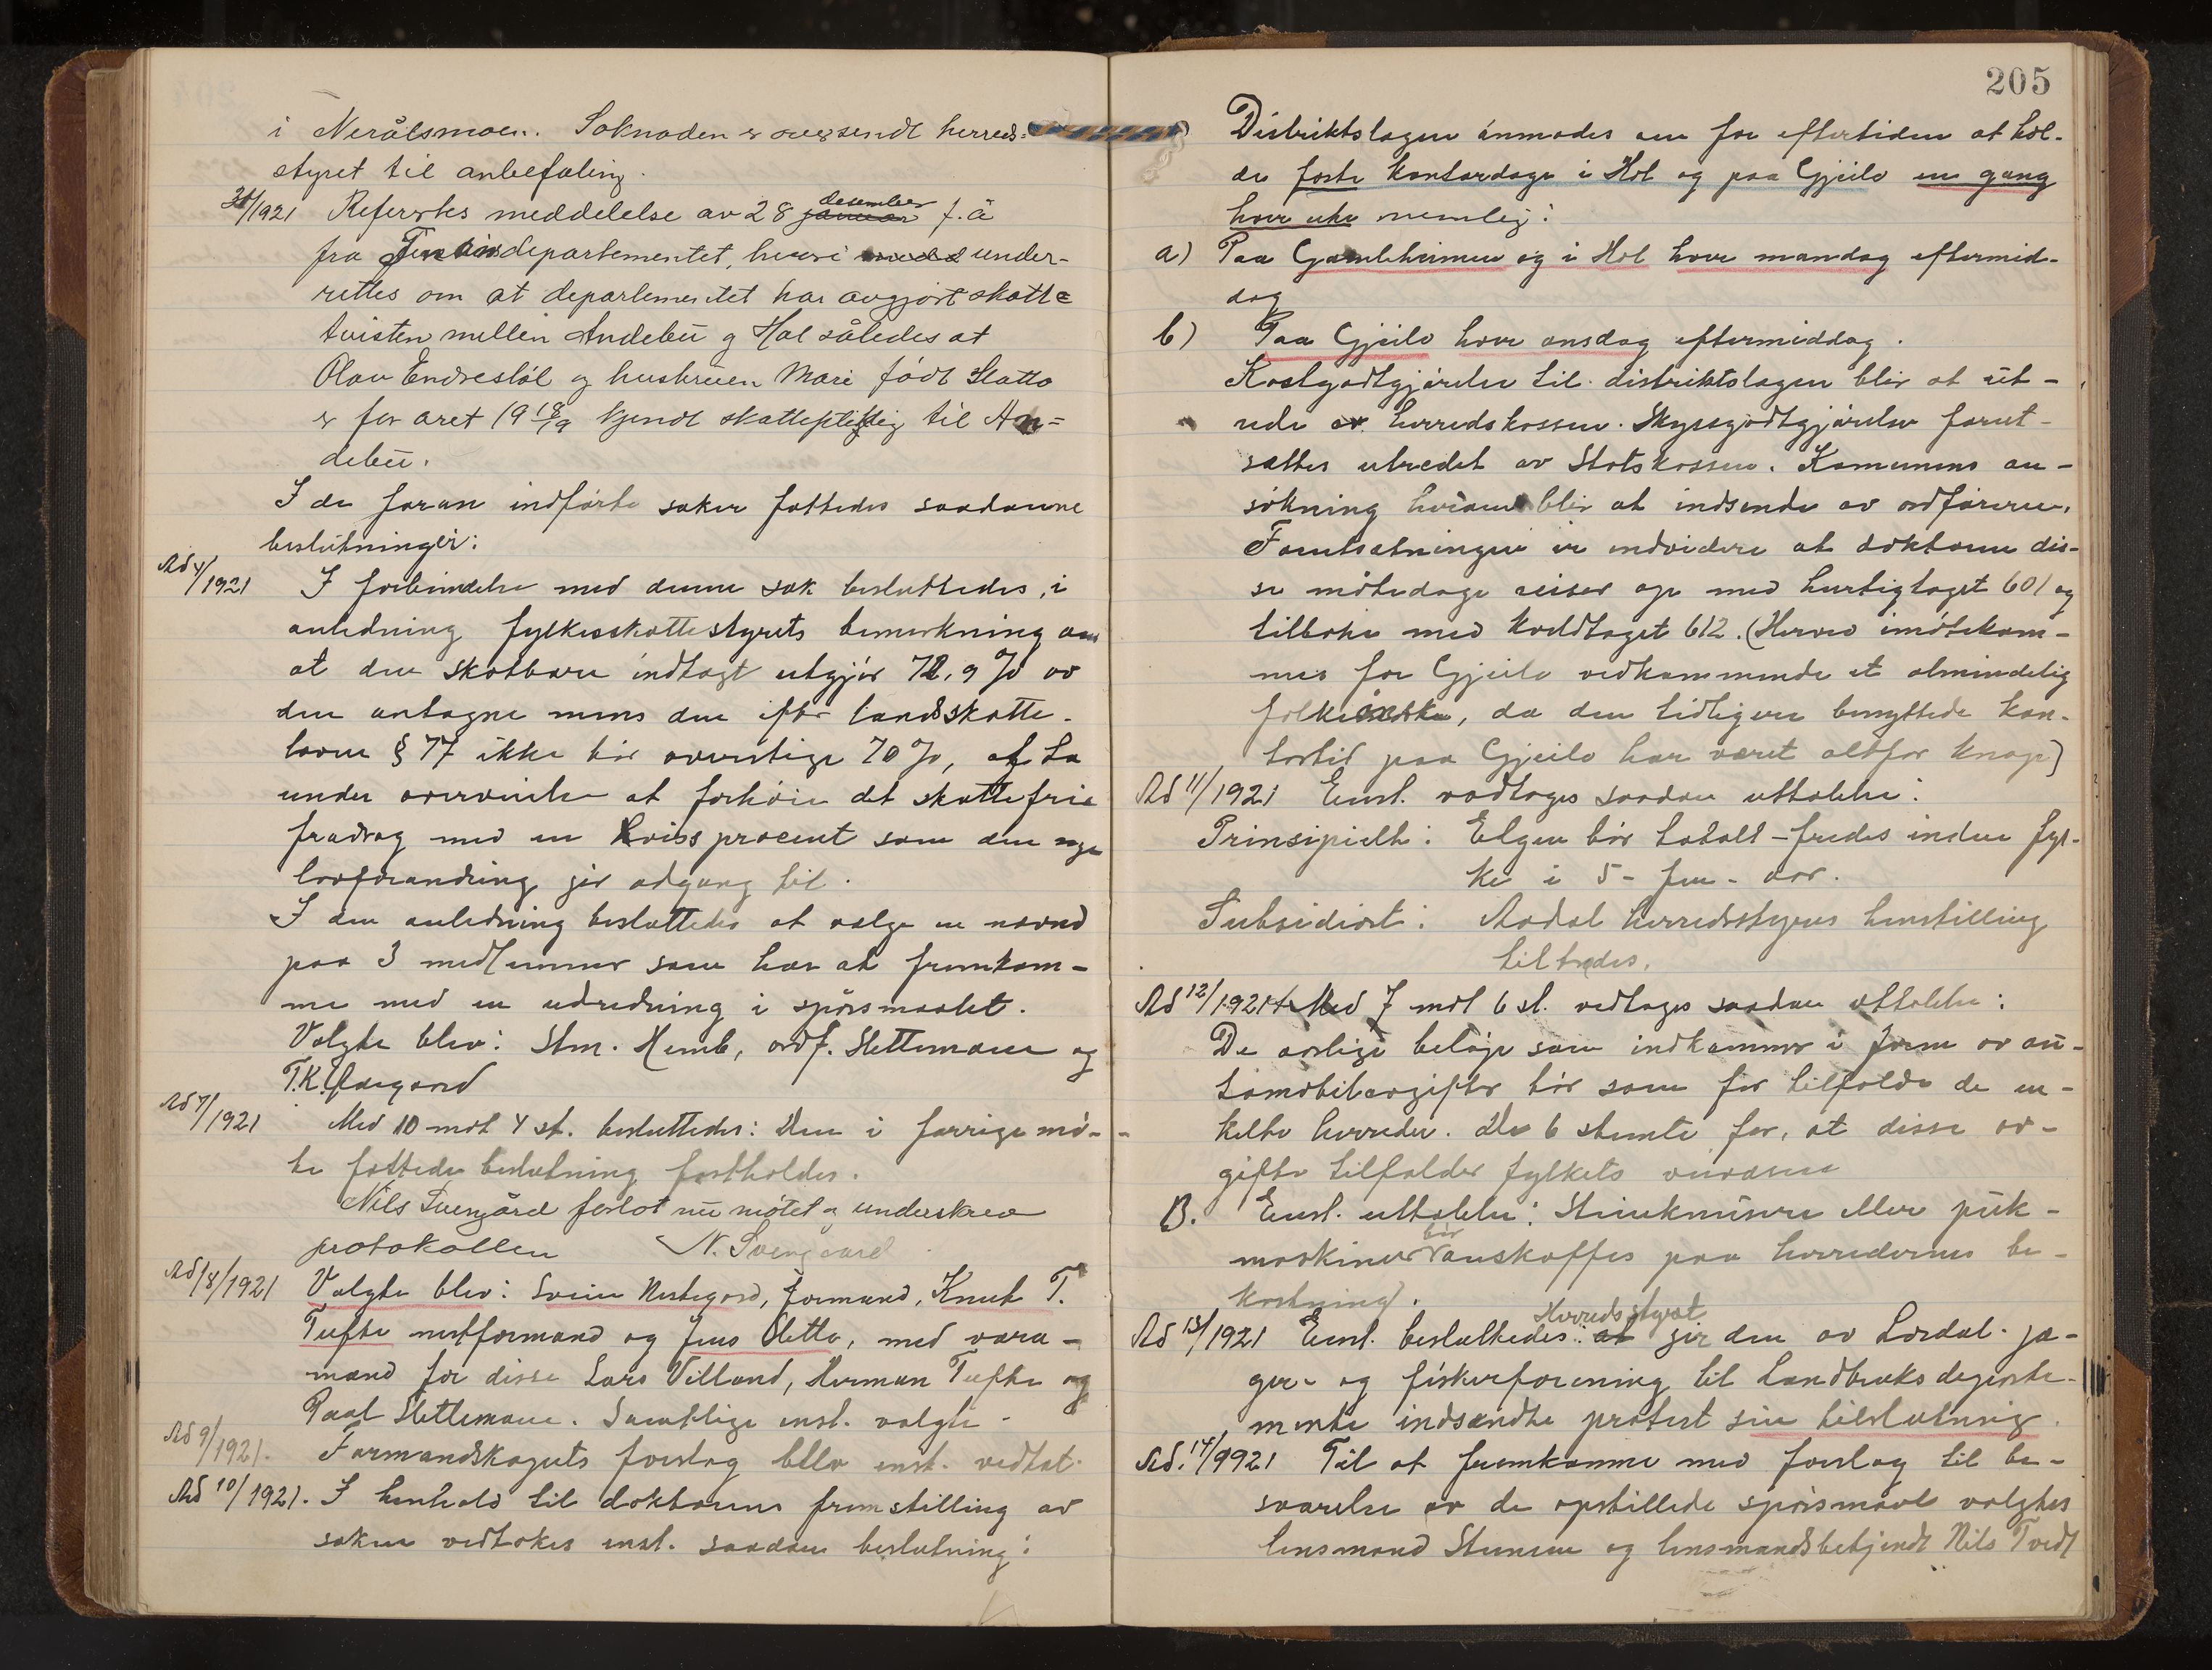 i Nerålsmoen. Søknaden er oversendt herreds=
styret til anbefaling.
/1921 Refertes meddelelse av 28 januar desember f. å
fra Finansdepartementet, hvori under-
rettes om at departementet har avgjort skatte
tvisten mellen Andebu og Hol således at
Olav Endrestøl og hustruen Mari født Sletto
er for året 1918/9 kjendt skattepliktig til An=
debu.
I de foran indførte saker fattedes saadanne
beslutninger:
Ad 4/1921 I forbindelse med denne sak besluttedes, i
anledning fylkesskattestyrets bemerkning om
at den skatbare indtægt utgjør 72,9 % av
den antagne mens den efter landsskatte-
loven § 77 ikke bør overstige 70 %, at ta
under overveielse at forhøie det skattefrie
fradrag med en viss procent som den nye
lovforandring gir adgang til.
I den anledning besluttedes at vælge en nævnd
paa 3 medlemmer som har at fremkom-
me med en utredning i spørsmaalet.
Valgte blev: Stm. Hemb, ordf. Slettemoen og
T.K. Ødegaard
Ad 7/1921 Med 10 mot 4 st. besluttedes: Den i forrige mø-
te fattede beslutning fastholdes.
Nils Svengård forlot nu møtet og underskrev
protokollen N. Svengaard
Ad 8/1921 Valgte blev: Svein Nestegard, formand, Knut T.
Tufte nestformand og Jens Sletto, med vara-
mænd for disse Lars Villand, Herman Tufte og
Paal Slettemoen. Samtlige enst. valgte.
Ad 9/1921. Formandskapets forslag blev enst. vedtat.
Ad 10/1921. I henhold til doktorens fremstilling av
saken vedtokes enst. saadan beslutning:
205
Distriktslægen anmodes om for eftertiden at hol-
de faste kontordage i Hol og paa Gjeilo en gang
hver uke nemlig:
a) Paa Gamleheimen og i Hol hver mandag eftermid-
dag
b) Paa Gjeilo hver onsdag eftermiddag.
Kostgodtgjørelse til distriktslægen blir at ut-
rede av herredskassen. Skyssgodtgjørelse forut-
sættes utredet av Statskassen. Komunens an-
søkning herom blir at indsende av ordføreren.
Forutsætningen er endvidere at doktoren dis-
se møtedage reiser op med hurtigtoget 601 og
tilbake med kveldtoget 612. (Herved imøtekom-
mes for Gjeilo vedkommende et almindelig
folkeønske, da den tidligere benyttede kon-
tortid paa Gjeilo har været altfor knap)
Ad 11/1921 Enst. vedtoges saadan uttalelse:
Prinsipielt: Elgen bør totalt fredes inden fyl-
ket i 5 - fem - aar.
Subsidiært: Aadal herredsstyres henstilling
tiltrædes.
Ad 12/1921 A. Med 7 mot 6 st. vedtoges saadan uttalelse:
De aarlige beløp som indkommer i form av au-
tomobilavgifter bør som før tilfalde de en-
kelte herreder. De 6 stemte for, at disse av-
gifter tilfalder fylkets veivæsen
B. Enst. uttalelse: Steinknusere eller puk-
maskiner bør anskaffes paa herredernes be-
kostning.
Ad 13/1921 Enst. besluttedes: at Herredsstyret gir den av Lærdal jæ-
ger- og fiskerforening til Landbruksdeparte-
mente indsendte protest sin tilslutning.
Ad. 14/1921 Til at fremkomme med forslag til be-
svarelse av de opstillede spørsmaal valgtes
lensmand Stenseen og lensmandsbetjent Nils Tvedt